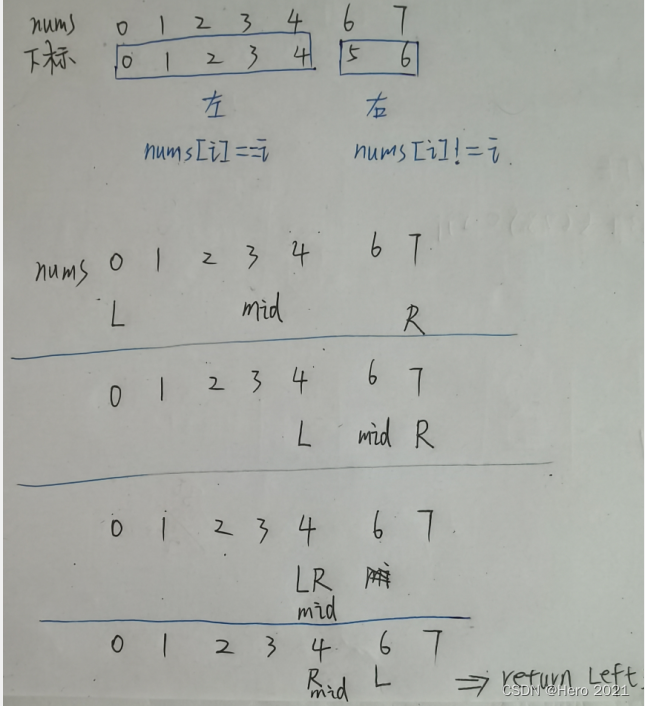 nums 0 1 2 3 4 6 7
下标 0 1 2 3 4 5 6
左 右
nums[i]==i nums[i]!=i.
nums 0 1 2 3 4 6 7
L mid R
0 1 2 3 4 6 7
L mid R
0 1 2 3 4 6 7
LR
mid
0 1 2 3 4 6 7
R mid L ⇒ return Left
CSDN @Hero 2021